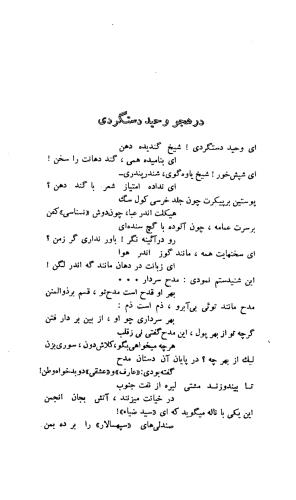 درهجو وحید دستگردی
ای وحید دستگردی! شیخ گندیده دهن
ای بنامیده همی، گند دهانت را سخن!
ای شپش‌خور! شیخ یاوه‌گوی، شندرپندری
ای نداده امتیاز شعر با گند دهن؟
پوستین برپیکرت چون جلد خرسی کول سگ
هیکلت اندر عبا، چون‌دوش‌نسناسی‌کفن
برسرت عمامه، چون آلوده با گچ سنده‌ای
رو درآئینه نگر! باور نداری گر زمن؟
ای سخنهایت همه، مانند گوز اندر هوا
ای زبانت در دهان مانند گه اندر لگن!
این شنیدستم نمودی: مدح سردار ....
بهر او قدح است مدح‌تو، قسم برذوالمنن
مدح مانند توئی بی‌آبرو، ذم است ذم:
بهر سرداری چو او، از بین بر دار فتن
گرچه تو از بهر پول، این مدح‌گفتی نی زقلب
هرچه میخواهی‌بگو،کلاش‌دون، سوری‌بزن
لیک از بهر چه؟ در پایان آن دستان مدح
گفته‌بودی: «عارف»و«عشقی»دوبدخواه‌وطن!
تا بیندوزند مشتی لیره از نفت جنوب
در خیانت میزنند، آتش بجان انجمن
این یکی با ناله میگوید که ای «سید ضیاء»!
صندلی‌های «سپهسالار» را بر ده بمن